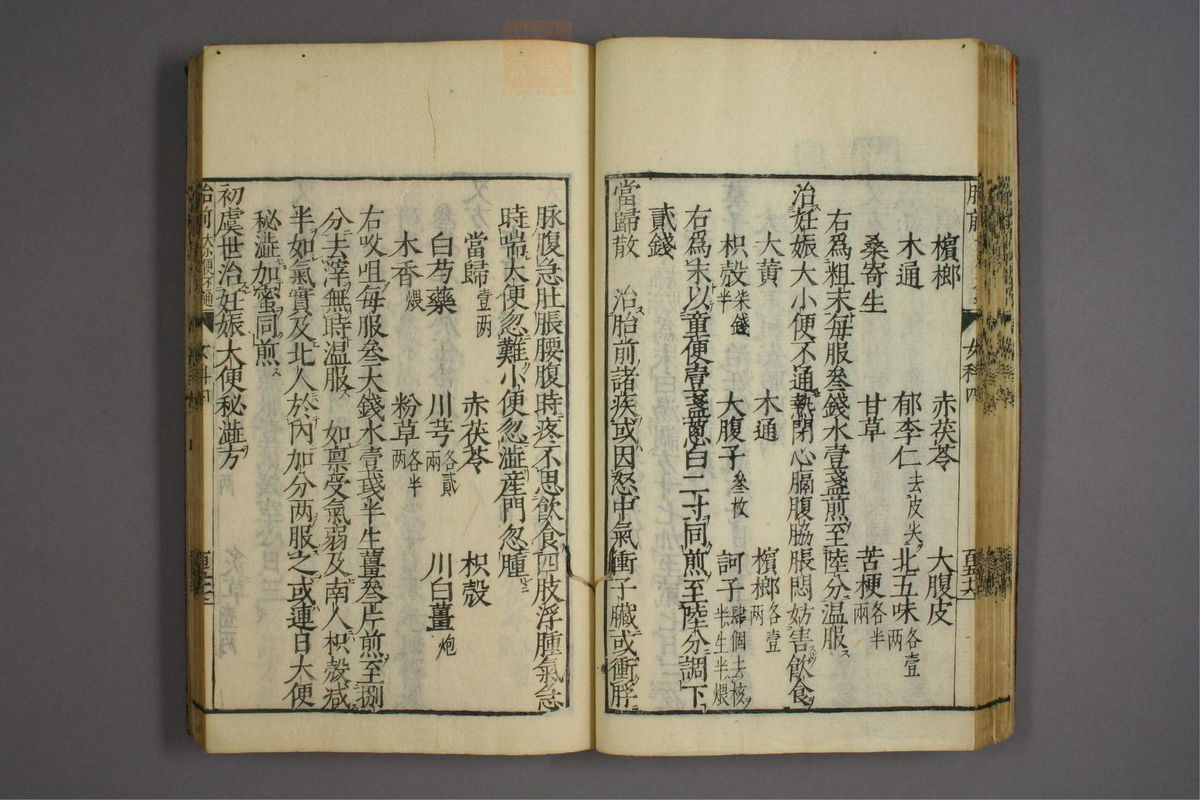 檳榔 赤茯苓 大腹皮
木通 郁李仁去皮尖 北五味各壹两
桑寄生 甘草 苦梗各半兩
右爲粗末每服叄錢水壹盞煎至陸分温服
治妊娠大小便不通熱閉心膈腹脇脹悶妨害飲食
大黄 木通 檳榔各壹两
枳殼柒錢半 大腹子叄枚 訶子肆個去核半生半煨
右爲末以童便壹盞葱白二寸同煎至陸分調下
貳錢
當歸散 治胎前諸疾或因怒中氣衝子臟或衝脬
脉腹急肚脹腰腹時疼不思飲食四肢浮腫氣急
時喘大便忽難小便忽澁産門忽腫
當歸壹两 赤茯苓 枳殼
白芍藥 川芎各貳兩 川白薑炮
木香煨 粉草各半两
右㕮咀每服叄大錢水壹或半生薑叄片煎至捌
分去滓無時温服 如禀受氣弱及南人枳殼减
半如氣實及北人於内加分两服之或連日大便
秘澁加蜜同煎
初虞世治妊娠大便秘澁方
胎前 大小便不通 女科四